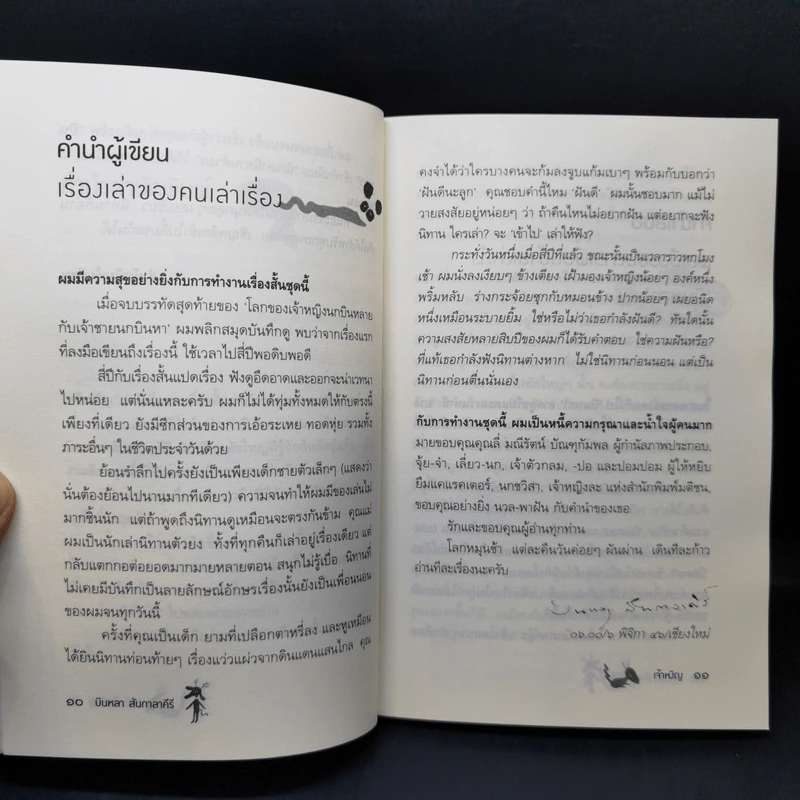 คำนำผู้เขียน
เรื่องเล่าของคนเล่าเรื่อง
ผมมีความสุขอย่างยิ่งกับการทำงานเรื่องสั้นชุดนี้
เมื่อจบบรรทัดสุดท้ายของ ‘โลกของเจ้าหญิงนกบินหลาย
กับเจ้าชายนกบินหา’ ผมพลิกสมุดบันทึกดู พบว่าจากเรื่องแรก
ที่ลงมือเขียนถึงเรื่องนี้ ใช้เวลาไปสี่ปีพอดิบพอดี
สี่ปีกับเรื่องสั้นแปดเรื่อง ฟังดูอืดอาดและออกจะน่าเวทนา
ไปหน่อย แต่นั่นแหละครับ ผมก็ไม่ได้ทุ่มทั้งหมดให้กับตรงนี้
เพียงที่เดียว ยังมีซีกส่วนของการเอ้อระเหย ทอดหุ่ย รวมทั้ง
ภาระอื่นๆ ในชีวิตประจำวันด้วย
ย้อนรำลึกไปครั้งยังเป็นเพียงเด็กชายตัวเล็กๆ (แสดงว่า
นั่นต้องย้อนไปนานมากทีเดียว) ความจนทำให้ผมมีของเล่นไม่
มากชิ้นนัก แต่ถ้าพูดถึงนิทานดูเหมือนจะตรงกันข้าม คุณแม่
ผมเป็นนักเล่านิทานตัวยง ทั้งที่ทุกคืนก็เล่าอยู่เรื่องเดียว แต่
กลับแตกกอต่อยอดมากมายหลายตอน สนุกไม่รู้เบื่อ นิทานที่
ไม่เคยมีบันทึกเป็นลายลักษณ์อักษรเรื่องนั้นยังเป็นเพื่อนนอน
ของผมจนทุกวันนี้
ครั้งที่คุณเป็นเด็ก ยามที่เปลือกตาหรี่ลง และหูเหมือน
ได้ยินนิทานท่อนท้ายๆ เรื่องแว่วแผ่วจากดินแดนแสนไกล คุณ
๑๐ บินหลา สันกาลาคีรี
คงจำได้ว่าใครบางคนจะก้มลงจูบแก้มเบาๆ พร้อมกับบอกว่า
‘ฝันดีนะลูก’ คุณชอบคำนี้ไหม ‘ฝันดี’ ผมนั้นชอบมาก แม้ไม่
วายสงสัยอยู่หน่อยๆ ว่า ถ้าคืนไหนไม่อยากฝัน แต่อยากจะฟัง
นิทาน ใครเล่า? จะ ‘เข้าไป’ เล่าให้ฟัง?
กระทั่งวันหนึ่งเมื่อสี่ปีที่แล้ว ขณะนั้นเป็นเวลาราวหกโมง
เช้า ผมนั่งลงเงียบๆ ข้างเตียง เฝ้ามองเจ้าหญิงน้อยๆ องค์หนึ่ง
พริ้มหลับ ร่างกระจ้อยซุกกับหมอนข้าง ปากน้อยๆ เผยอนิด
หนึ่งเหมือนระบายยิ้ม ใช่หรือไม่ว่าเธอกำลังฝันดี? ทันใดนั้น
ความสงสัยหลายสิบปีของผมก็ได้รับคำตอบ ใช่ความฝันหรือ?
ที่แท้เธอกำลังฟังนิทานต่างหาก ไม่ใช่นิทานก่อนนอน แต่เป็น
นิทานก่อนตื่นนั่นเอง
กับการทำงานชุดนี้ ผมเป็นหนี้ความกรุณาและน้ำใจผู้คนมาก
มายขอบคุณคุณลี่ มณีรัตน์ บัณฑุกัมพล ผู้กำนัลภาพประกอบ,
จุ้ย-จำ, เลี่ยว-นก, เจ้าตัวกลม, -ปอ และปอมปอม ผู้ให้หยิบ
ยืมแคแรคเตอร์, นกชวิสา, เจ้าหญิงละ แห่งสำนักพิมพ์มติชน,
ขอบคุณอย่างยิ่ง นวล-พาฝัน กับคำนำของเธอ
รักและขอบคุณผู้อ่านทุกท่าน
โลกหมุนช้า แต่ละคืนวันค่อยๆ ผันผ่าน เดินทีละก้าว
อ่านทีละเรื่องนะครับ
บินหลา สันกาลาคีรี
พิจิกา ๔๖/เชียงใหม่
เจ้าหงิญ ๑๑